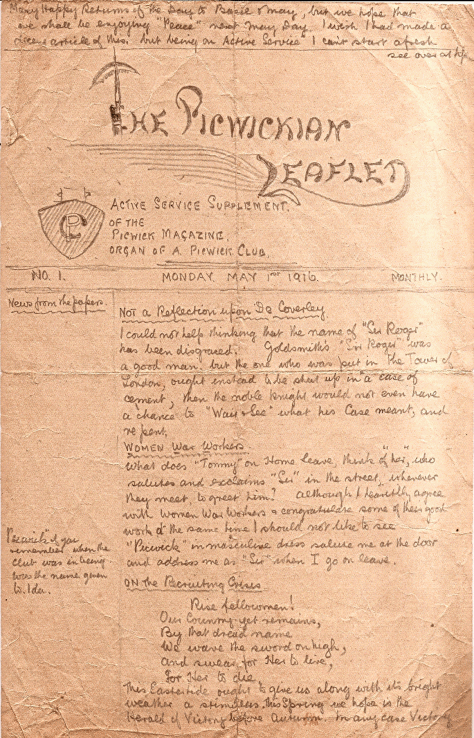 Many Happy Returns of the Day to Basil o' may, but we hope that
we shall be enjoying "Peace" next May Day. I wish I had made a
article of this. but being on Active Service I can't start afresh
see over at top
THE PICWICKIAN
LEAFLET
CP
ACTIVE SERVICE SUPPLEMENT.
OF THE
PICWICK MAGAZINE.
ORGAN OF A PICWICK CLUB.
NO. 1. MONDAY. MAY 1ST 1916. MONTHLY.
News from the papers.
Not a Reflection upon De Coverley.
I could not help thinking that the name of "Sir Roger"
has been disgraced. Goldsmith's "Sir Roger" was
a good man. but the one who was put in The Tower of
London, ought instead to be shut up in "a case of
cement, then the noble knight would not even have
a chance to "Wait & See" what his Case meant, and
repent.
WOMEN War Workers.
What does "Tommy" on Home leave, think of "her", who
salutes and exclaims "Sir" in the street, wherever
they meet, to greet him? Although I heartily agree
with Women War Workers & congratulate some of their good
work at the same time I should not like to see
"Picwick" in masculine dress salute me at the door
and address me as "Sir" when I go on leave.
Picwick if you
remember when the
club was in being
was the name given
to Ida.
ON the Recruiting Crisis
Rise fellowmen!
Our Country yet remains,
By that dread name
We wave the sword on high,
And swear for Her to live,
For Her to die
This Eastertide ought to give us along with its bright
weather a stimulus. this Spring we hope is the
Herald of Victory before Autumn. In any case Victory